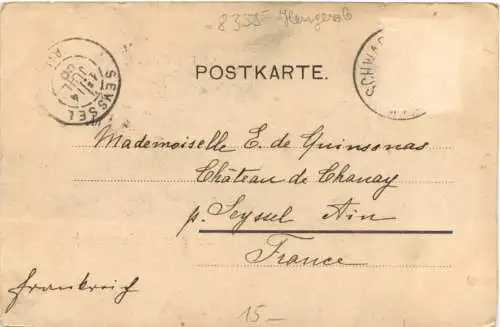 8335-
POSTKARTE.
SEYSSEL
AIN
14
JUIL
SCHWAR
Mademoiselle E. de Quinsonas
Château de Chanay
p. Seyssel Ain
France
Frankreich
15-